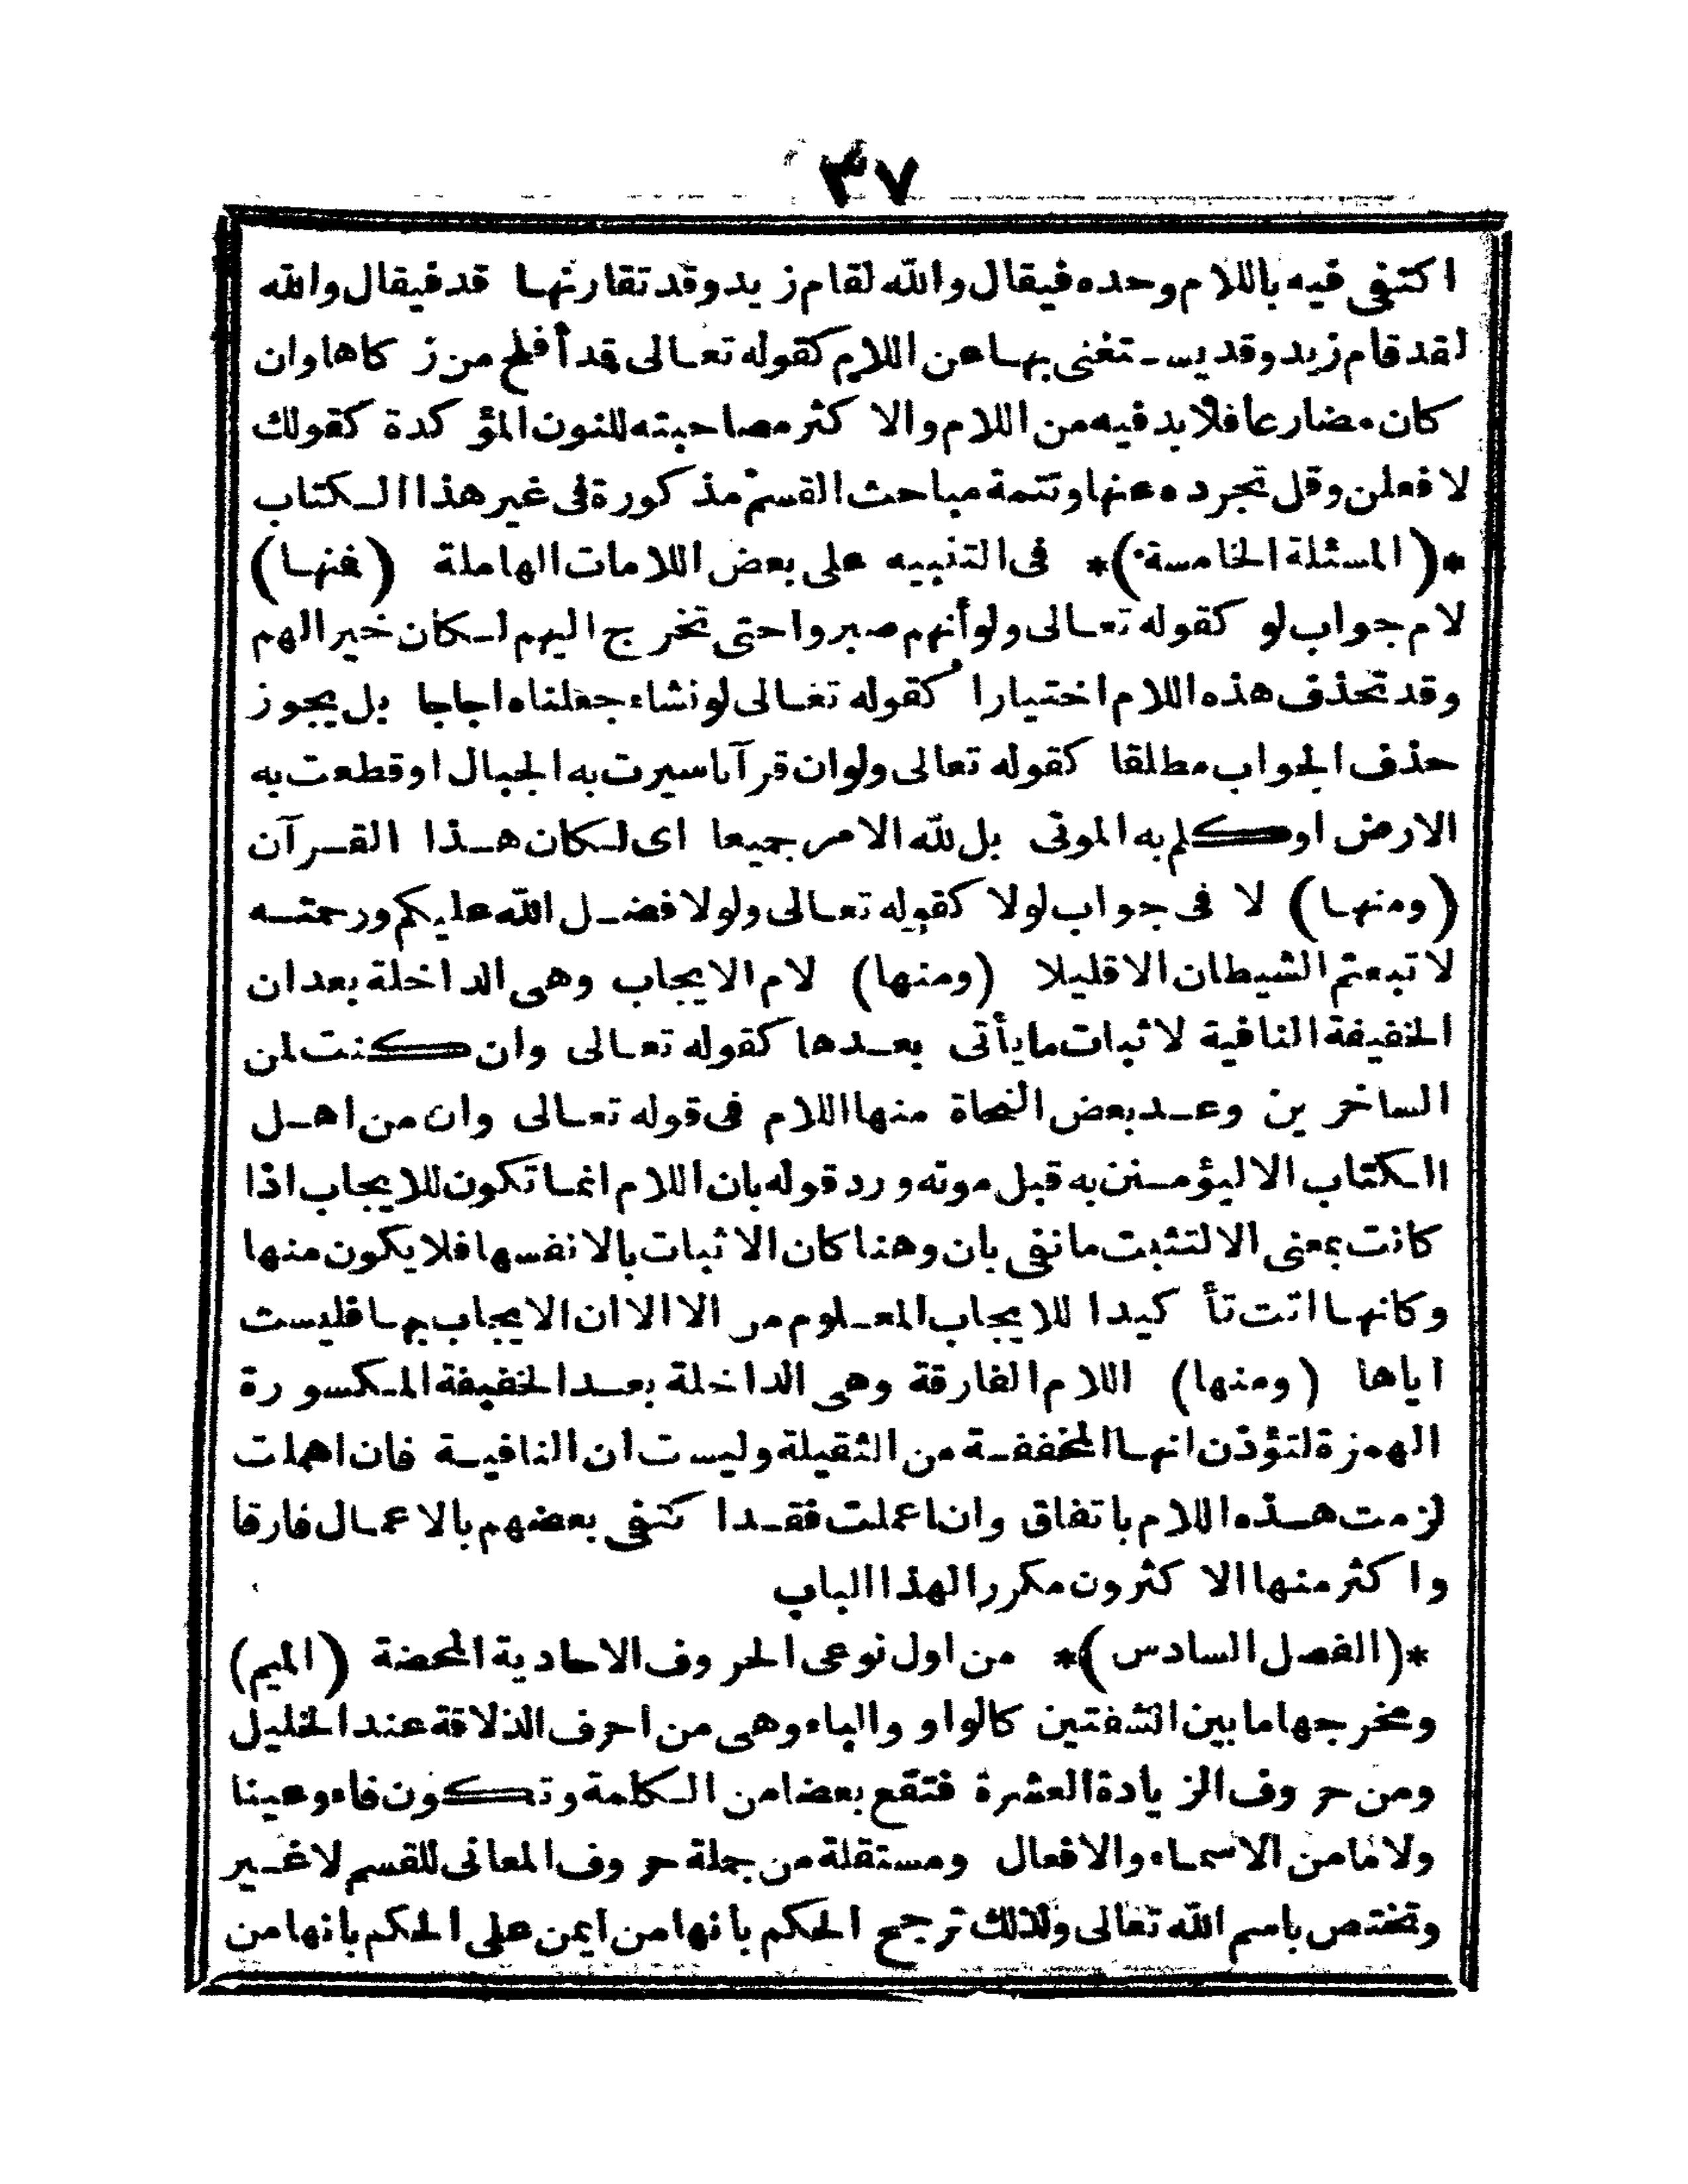 ٣٧
اكتفى فيه باللام وحده فيقال والله لقام زيد وقد تقارنها قد فيقال والله
لقد قام زيد وقد يستغنى بها عن اللام كقوله تعالى قد أفلح من زكاها وان
كان مضارعا فلابد فيه من اللام والاكثر مصاحبته للنون المؤكدة كقولك
لافعلن وقل تجرده عنها وتتمة مباحث القسم مذكورة فى غير هذا الكتاب
*(المسئلة الخامسة)* فى التنبيه على بعض اللامات الهاملة (فنها)
لام جواب لو كقوله تعالى ولو أنهم صبروا حتى تخرج اليهم لكان خيرا لهم
وقد تحذف هذه اللام اختيارا كقوله تعالى لو نشاء جعلناه اجاجا بل يجوز
حذف الجواب مطلقا كقوله تعالى ولو ان قرآنا سيرت به الجبال او قطعت به
الارض او كلم به الموتى بل لله الامر جميعا اى لكان هذا القرآن
(ومنها) لا فى جواب لولا كقوله تعالى ولولا فضل الله عليكم ورحمته
لاتبعتم الشيطان الا قليلا (ومنها) لام الايجاب وهى الداخلة بعد ان
الخفيفة النافية لاثبات ما يأتى بعدها كقوله تعالى وان كنت لمن
الساخرين وعد بعض النحاة منها اللام فى قوله تعالى وان من اهل
الكتاب الا ليؤمنن به قبل موته ورد قوله بان اللام انما تكون للايجاب اذا
كانت بمعنى الا لتثبت ما نفى بان وهنا كان الاثبات بالا نفسها فلا يكون منها
وكانها اتت تأكيدا للايجاب المعلوم من الا الا ان الايجاب بها فليست
اياها (ومنها) اللام الفارقة وهى الداخلة بعد الخفيفة المكسورة
الهمزة لتؤذن انها المخففة من الثقيلة وليست ان النافية فان اهملت
لزمت هذه اللام باتفاق وان اعملت فقد اكتفى بعضهم بالاعمال فارقا
واكثر منها الاكثرون مكررا لهذا الباب
*(الفصل السادس)* من اول نوعى الحروف الاحادية المحضة (الميم)
ومخرجها ما بين الشفتين كالواو والباء وهى من احرف الذلاقة عند الخليل
ومن حروف الزيادة العشرة فتقع بعضا من الكلمة وتكون فاء وعينا
ولاما من الاسماء والافعال ومستقلة من جملة حروف المعانى للقسم لا غير
وتختص باسم الله تعالى ولذلك ترجح الحكم بانها من ايمن على الحكم بانها من